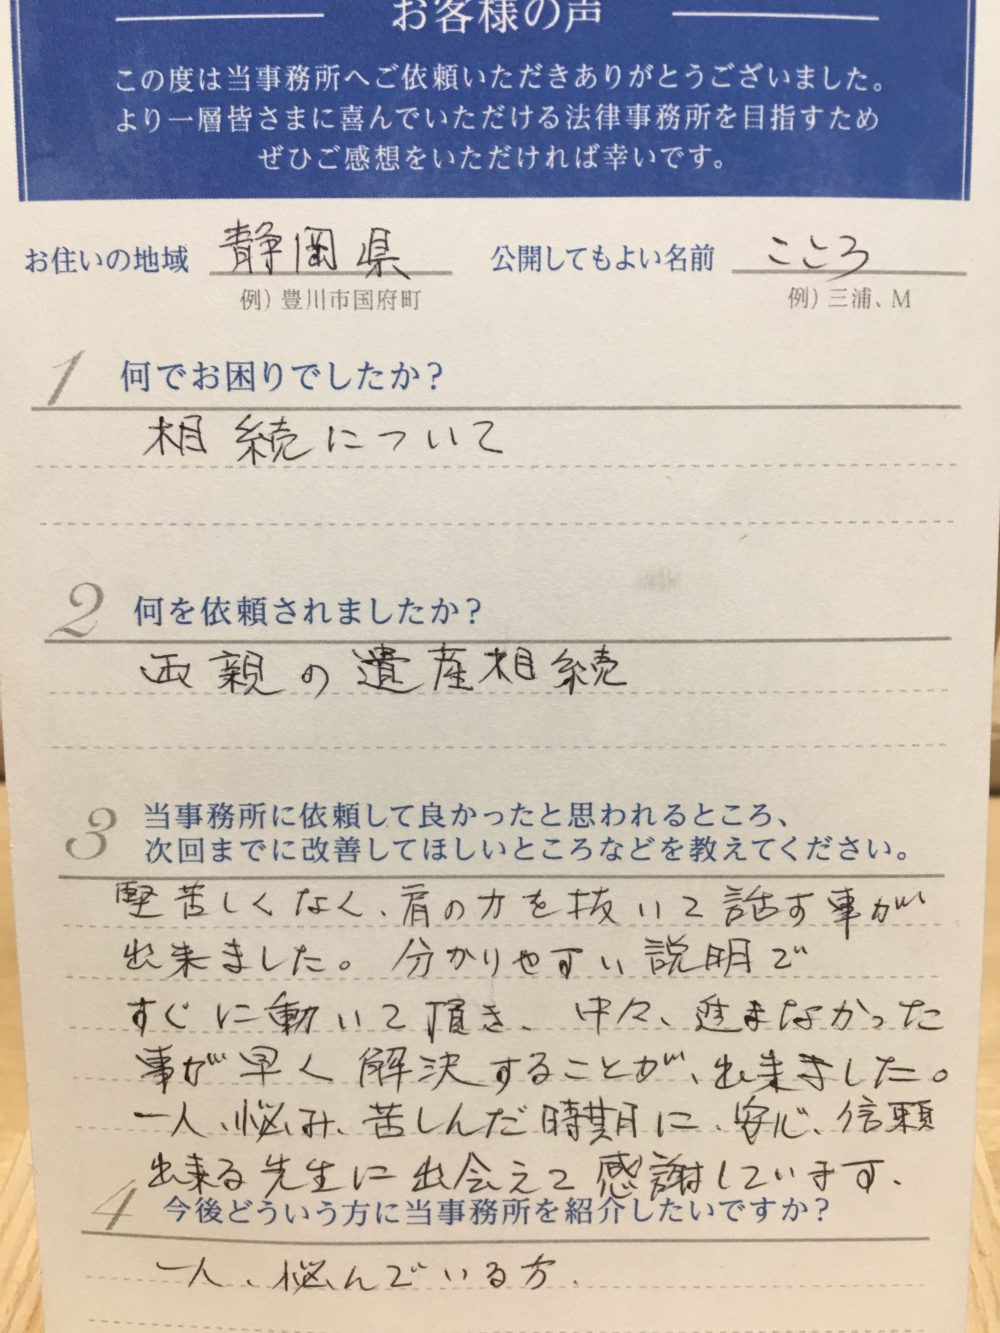 お客様の声
この度は当事務所へご依頼いただきありがとうございました。
より一層皆さまに喜んでいただける法律事務所を目指すため
ぜひご感想をいただければ幸いです。
お住いの地域 静岡県 公開してもよい名前 こころ
例）豊川市国府町 例）三浦、M
1 何でお困りでしたか？
相続について
2 何を依頼されましたか？
両親の遺産相続
3 当事務所に依頼して良かったと思われるところ、
次回までに改善してほしいところなどを教えてください。
堅苦しくなく、肩の力を抜いて話す事が
出来ました。分かりやすい説明で
すぐに動いて頂き、中々、進まなかった
事が早く解決することが、出来ました。
一人、悩み、苦しんだ時期に、安心、信頼
出来る先生に出会えて感謝しています。
4 今後どういう方に当事務所を紹介したいですか？
一人、悩んでいる方.